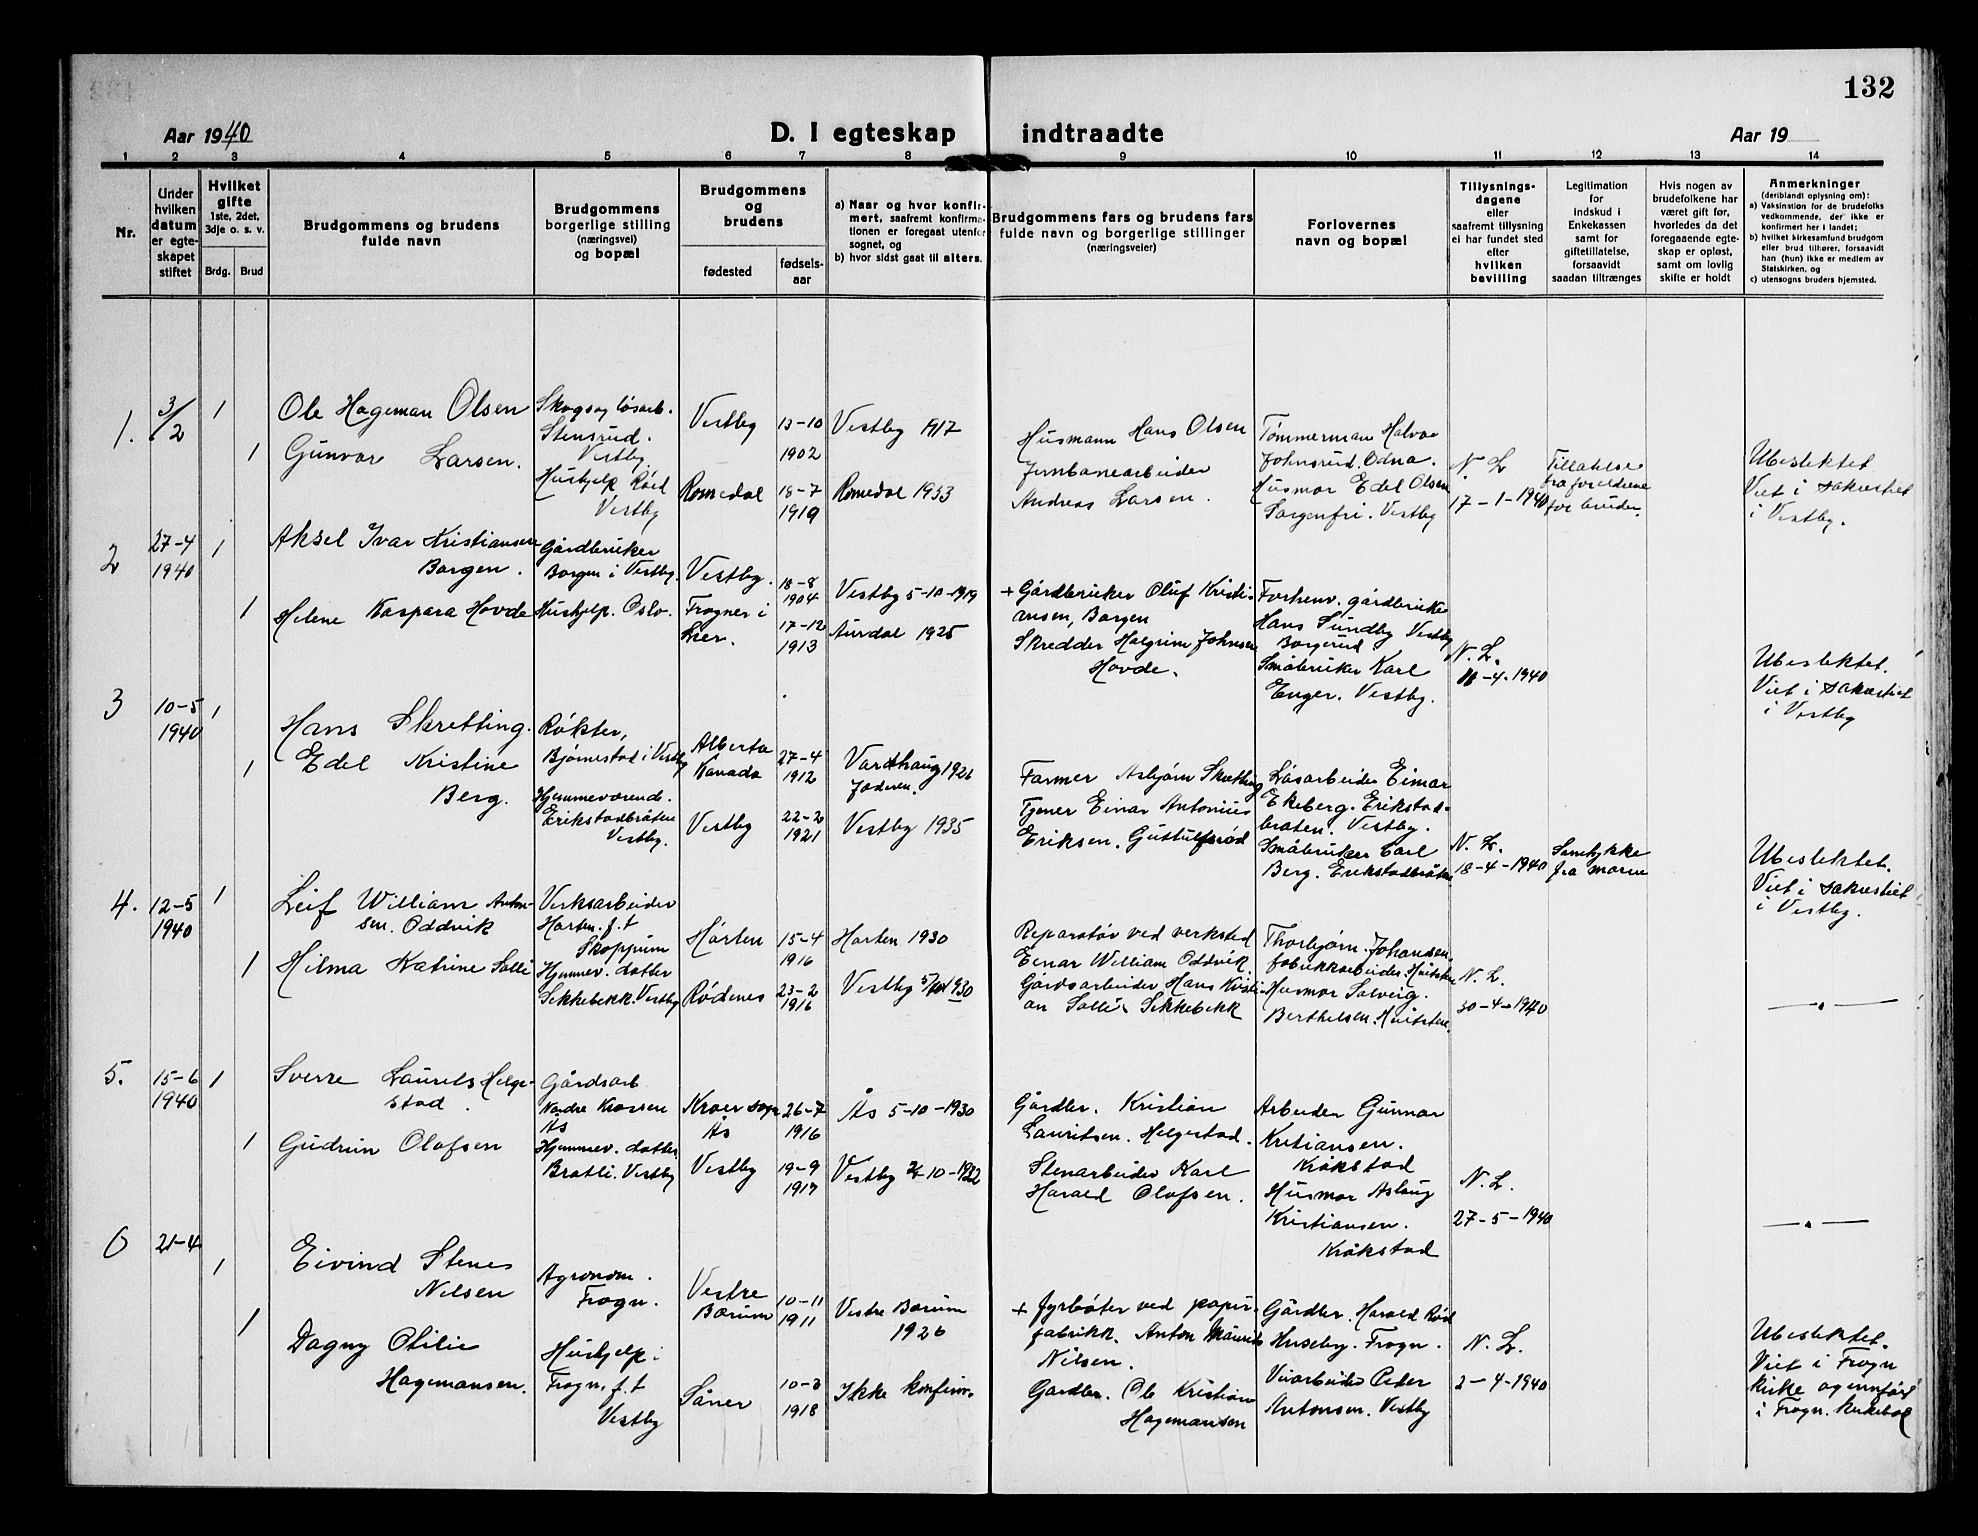 132
Aar 1940
D. I egteskap indtraadte
Aar 19
1 2 3 4 5 6 7 8 9 10 11 12 13 14
Nr.
Under
hvilken
datum
er egte-
skapet
stiftet
Hvilket
gifte
1ste, 2det,
3dje o. s. v.
Brdg. Brud
Brudgommens og brudens
fulde navn
Brudgommens
borgerlige stilling
(næringsvei)
og bopæl
Brudgommens
og
brudens
fødested
fødsels-
aar
a) Naar og hvor konfir-
mert, saafremt konfirma-
tionen er foregaat utenfor
sognet, og
b) hvor sidst gaat til alters.
Brudgommens fars og brudens fars
fulde navn og borgerlige stillinger
(næringsveier)
Forlovernes
navn og bopæl
Tillysnings-
dagene
eller
saafremt tillysning
ei har fundet sted
efter
hvilken
bevilling
Legitimation
for
indskud i
Enkekassen
samt for
giftetillatelse,
forsaavidt
saadan tiltrænges
Hvis nogen av
brudefolkene har
været gift før,
hvorledes da det
foregaaende egte-
skap er opløst,
samt om lovlig
skifte er holdt
Anmerkninger
(deriblandt oplysning om):
a) Vaksinstion for de brudefolks
vedkommende, der ikke er
konfirmert her i landet;
b) hvilket kirkesamfund brudgom
eller brud tilhører, forsaavidt
han (hun) ikke er medlem av
Statskirken, og
c) utensogns bruders hjemsted.
1.
3/2
1
1
Ole Hageman Olsen
Gunvor Larsen.
Skogs og løsarb.
Stensrud.
Vestby
Hushjelp Røed
Vestby
Vestby
Romedal
13-10
1902
18-7
1919
Vestby 1917
Romedal 1933
Husmann Hans Olsen
Jernbanearbeider
Andreas Larsen.
Tømmerman Halvor
Johnsrud. Odna.
Husmor Edel Olsen
Sorgenfri. Vestby
N. L.
17-1-1940
Tillatelse
fra foreldrene
for bruden.
Ubeslektet
Viet i sakrestiet
i Vestby.
2
27-4
1940
1
1
Aksel Ivar Kristiansen
Borgen.
Helene Kaspara Hovde
Gårdbruker
Borgen i Vestby.
Hushjelp. Oslo.
Vestby.
Frogner i
Lier.
18-8
1904
17-12
1913
Vestby 5-10-1919
Aurdal 1925
+ Gårdbruker Oluf Kristi-
ansen, Borgen
Skredder Halgrim Johnsen
Hovde.
Forhenv. gårdbruker
Hans Sundby Vestby
Borgerud
Småbruker Karl
Enger. Vestby.
N. L.
11-4-1940
Ubeslektet.
Viet i sakrestiet
i Vestby
3
10-5
1940
1
1
Hans Skretting.
Edel Kristine
Berg.
Røkter,
Bjørnestad i Vestby
Hjemmeværende.
Erikstadbråten
Vestby.
Alberta
Kanada
Vestby
27-4
1912
22-2
1921
Vardhaug 1926
Jæderen.
Vestby 1935
Farmer Asbjørn Skretting
Tjener Einar Antonius
Eriksen. Guttulsrød
Løsarbeider Einar
Ekeberg. Erikstad-
bråten. Vestby.
Småbruker Carl
Berg. Erikstadbråten
N. L.
18-4-1940
Samtykke
fra moren
Ubeslektet.
Viet i sakrestiet
i Vestby.
4.
12-5
1940
1
1
Leif William Anton-
sen Oddvik
Hilma Katrine Solli
Verksarbeider
Horten. f.t
Skoppum
Hjemmev. datter
Sikkebekk. Vestby
Horten
Rødenes
15-4
1916
23-2
1916
Horten 1930
Vestby 5/10 1930
Reparatør ved verksted
Einar William Oddvik.
Gårdsarbeider Hans Kristi-
an Solli. Sikkebekk
Thorbjørn. Johansen.
fabrikkarbeider. Hvitsten
Husmor Solveig.
Berthelsen. Hvitsten.
N. L.
30-4-1940
— " —
5.
15-6
1940
1
1
Sverre Laurits Helge-
stad.
Gudrun Olafsen
Gårdsarb
Nordre Krossen
Ås
Hjemmev. datter.
Bratli. Vestby
Kroer sogn
Ås
Vestby
26-7
1916
19-9
1917
Ås 5-10-1930
Vestby 2-10-1932
Gårdbr. Kristian
Lauritsen. Helgestad.
Stenarbeider Karl
Harald Olafsen.
Arbeider Gunnar
Kristiansen.
Kråkstad
Husmor Aslaug
Kristiansen.
Kråkstad
N. L.
27-5-1940
— " —
6
21-4
1
1
Eivind Stenes
Nilsen
Dagny Otilie
Hagemansen.
Agronom.
Frogn.
Hushjelp i
Frogn. f.t
Vestby
Vestre
Bærum
Såner
10-11
1911
10-3
1918
Vestre Bærum
1926
Ikke konfirm.
+ Fyrbøter ved papir-
fabrikk. Anton Maurits
Nilsen.
Gårdbr. Ole Kristian
Hagemansen
Gårdbr. Harald Rød
Huseby. Frogn.
Veiarbeider Peder
Antonsen. Vestby
N. L.
2-4-1940
Ubeslektet.
Viet i Frogn
kirke og innført
i Frogn. kirkebok